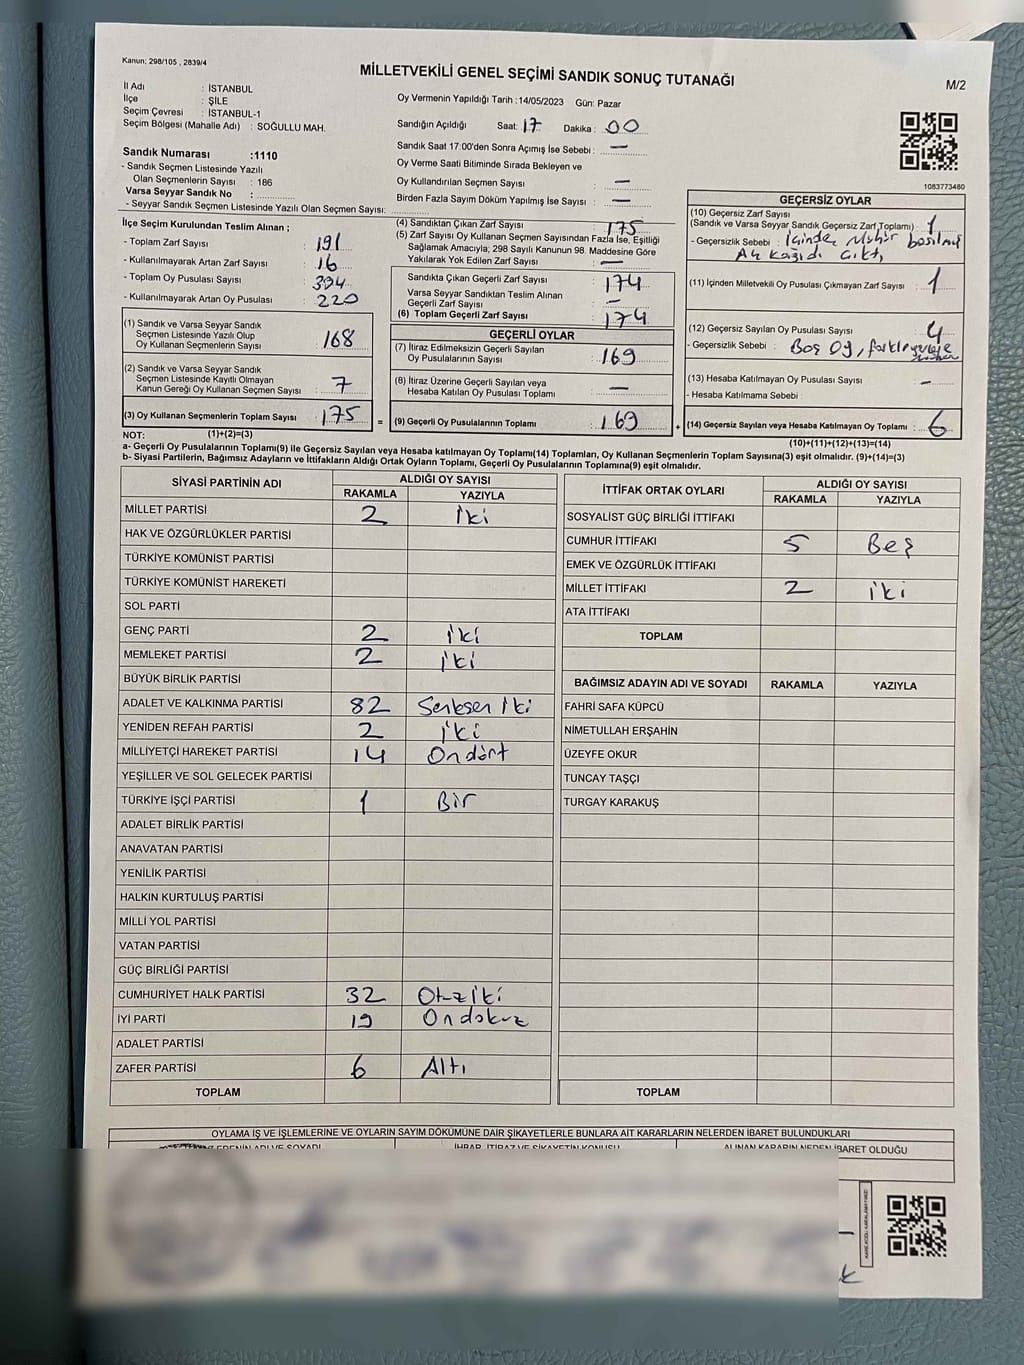 Kanun: 298/105 , 2839/4
MİLLETVEKİLİ GENEL SEÇİMİ SANDIK SONUÇ TUTANAĞI
M/2
İl Adı : İSTANBUL
İlçe : ŞİLE
Seçim Çevresi : İSTANBUL-1
Seçim Bölgesi (Mahalle Adı) : SOĞULLU MAH.
Oy Vermenin Yapıldığı Tarih :14/05/2023 Gün: Pazar
Sandığın Açıldığı Saat: 17 Dakika : 00
Sandık Saat 17:00'den Sonra Açımış İse Sebebi : —
Oy Verme Saati Bitiminde Sırada Bekleyen ve
Oy Kullandırılan Seçmen Sayısı : —
Birden Fazla Sayım Döküm Yapılmış İse Sayısı : —
Sandık Numarası :1110
- Sandık Seçmen Listesinde Yazılı
Olan Seçmenlerin Sayısı : 186
Varsa Seyyar Sandık No :
- Seyyar Sandık Seçmen Listesinde Yazılı Olan Seçmen Sayısı:
1083773480
İlçe Seçim Kurulundan Teslim Alınan ;
- Toplam Zarf Sayısı : 191
- Kullanılmayarak Artan Zarf Sayısı : 16
- Toplam Oy Pusulası Sayısı : 394
- Kullanılmayarak Artan Oy Pusulası : 220
(1) Sandık ve Varsa Seyyar Sandık
Seçmen Listesinde Yazılı Olup
Oy Kullanan Seçmenlerin Sayısı : 168
(2) Sandık ve Varsa Seyyar Sandık
Seçmen Listesinde Kayıtlı Olmayan
Kanun Gereği Oy Kullanan Seçmen Sayısı : 7
(3) Oy Kullanan Seçmenlerin Toplam Sayısı : 175
=
(4) Sandıktan Çıkan Zarf Sayısı : 175
(5) Zarf Sayısı Oy Kullanan Seçmen Sayısından Fazla İse, Eşitliği
Sağlamak Amacıyla; 298 Sayılı Kanunun 98. Maddesine Göre
Yakılarak Yok Edilen Zarf Sayısı : —
Sandıkta Çıkan Geçerli Zarf Sayısı : 174
Varsa Seyyar Sandıktan Teslim Alınan
Geçerli Zarf Sayısı : —
(6) Toplam Geçerli Zarf Sayısı : 174
GEÇERLİ OYLAR
(7) İtiraz Edilmeksizin Geçerli Sayılan
Oy Pusulalarının Sayısı : 169
(8) İtiraz Üzerine Geçerli Sayılan veya
Hesaba Katılan Oy Pusulası Toplamı : —
(9) Geçerli Oy Pusulalarının Toplamı : 169
+
GEÇERSİZ OYLAR
(10) Geçersiz Zarf Sayısı
(Sandık ve Varsa Seyyar Sandık Geçersiz Zarf Toplamı) : 1
- Geçersizlik Sebebi : İçinden Mühür basılmış
A4 kağıdı çıktı
(11) İçinden Milletvekili Oy Pusulası Çıkmayan Zarf Sayısı : 1
(12) Geçersiz Sayılan Oy Pusulası Sayısı : 4
- Geçersizlik Sebebi : Boş Oy,
(13) Hesaba Katılmayan Oy Pusulası Sayısı : -
- Hesaba Katılmama Sebebi :
(14) Geçersiz Sayılan veya Hesaba Katılmayan Oy Toplamı : 6
NOT: (1)+(2)=(3)
(10)+(11)+(12)+(13)=(14)
a- Geçerli Oy Pusulalarının Toplamı(9) ile Geçersiz Sayılan veya Hesaba katılmayan Oy Toplamı(14) Toplamları, Oy Kullanan Seçmenlerin Toplam Sayısına(3) eşit olmalıdır. (9)+(14)=(3)
b- Siyasi Partilerin, Bağımsız Adayların ve İttifakların Aldığı Ortak Oyların Toplamı, Geçerli Oy Pusulalarının Toplamına(9) eşit olmalıdır.
SİYASİ PARTİNİN ADI
ALDIĞI OY SAYISI
RAKAMLA YAZIYLA
MİLLET PARTİSİ 2 İki
HAK VE ÖZGÜRLÜKLER PARTİSİ
TÜRKİYE KOMÜNİST PARTİSİ
TÜRKİYE KOMÜNİST HAREKETİ
SOL PARTİ
GENÇ PARTİ 2 iki
MEMLEKET PARTİSİ 2 iki
BÜYÜK BİRLİK PARTİSİ
ADALET VE KALKINMA PARTİSİ 82 Senksen İki
YENİDEN REFAH PARTİSİ 2 iki
MİLLİYETÇİ HAREKET PARTİSİ 14 Ondört
YEŞİLLER VE SOL GELECEK PARTİSİ
TÜRKİYE İŞÇİ PARTİSİ 1 Bir
ADALET BİRLİK PARTİSİ
ANAVATAN PARTİSİ
YENİLİK PARTİSİ
HALKIN KURTULUŞ PARTİSİ
MİLLİ YOL PARTİSİ
VATAN PARTİSİ
GÜÇ BİRLİĞİ PARTİSİ
CUMHURİYET HALK PARTİSİ 32 Otuziki
İYİ PARTİ 19 Ondokuz
ADALET PARTİSİ
ZAFER PARTİSİ 6 Altı
TOPLAM
İTTİFAK ORTAK OYLARI
ALDIĞI OY SAYISI
RAKAMLA YAZIYLA
SOSYALİST GÜÇ BİRLİĞİ İTTİFAKI
CUMHUR İTTİFAKI 5 Beş
EMEK VE ÖZGÜRLÜK İTTİFAKI
MİLLET İTTİFAKI 2 iki
ATA İTTİFAKI
TOPLAM
BAĞIMSIZ ADAYIN ADI VE SOYADI RAKAMLA YAZIYLA
FAHRİ SAFA KÜPCÜ
NİMETULLAH ERŞAHİN
ÜZEYFE OKUR
TUNCAY TAŞÇI
TURGAY KARAKUŞ
TOPLAM
OYLAMA İŞ VE İŞLEMLERİNE VE OYLARIN SAYIM DÖKÜMÜNE DAİR ŞİKAYETLERLE BUNLARA AİT KARARLARIN NELERDEN İBARET BULUNDUKLARI
EDENİN ADI VE SOYADI İHBAR, İTİRAZ VE ŞİKAYETİN KONUSU ALINAN KARARIN NEDEN İBARET OLDUĞU